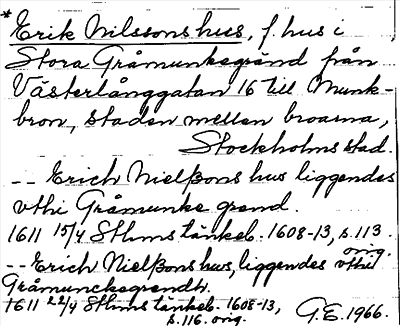 *Erik Nilssons hus, f. hus i
Stora Gråmunkegränd från
Västerlånggatan 16 till Munk-
bron, staden mellan broarna,
Stockholms stad.
-- Erich Nielßons hus liggendes
vthi Gråmunke grend.
1611 15/4 Sthms tänkeb. 1608-13, s. 113.
orig.
-- Erich Nielßons hus, liggendes vthi
Gråmunckegrendh.
1611 22/4 Sthms tänkeb. 1608-13,
s. 116. orig.
G.E. 1966.